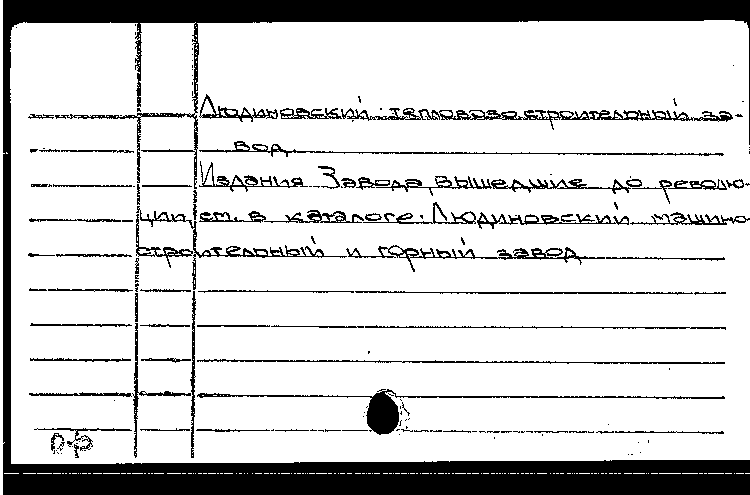 Людиновский тепловозостроительный за-
вод.
Издания Завода, вышедшие до револю-
ции, см. в каталоге: Людиновский машино-
строительный и горный завод
о-ф